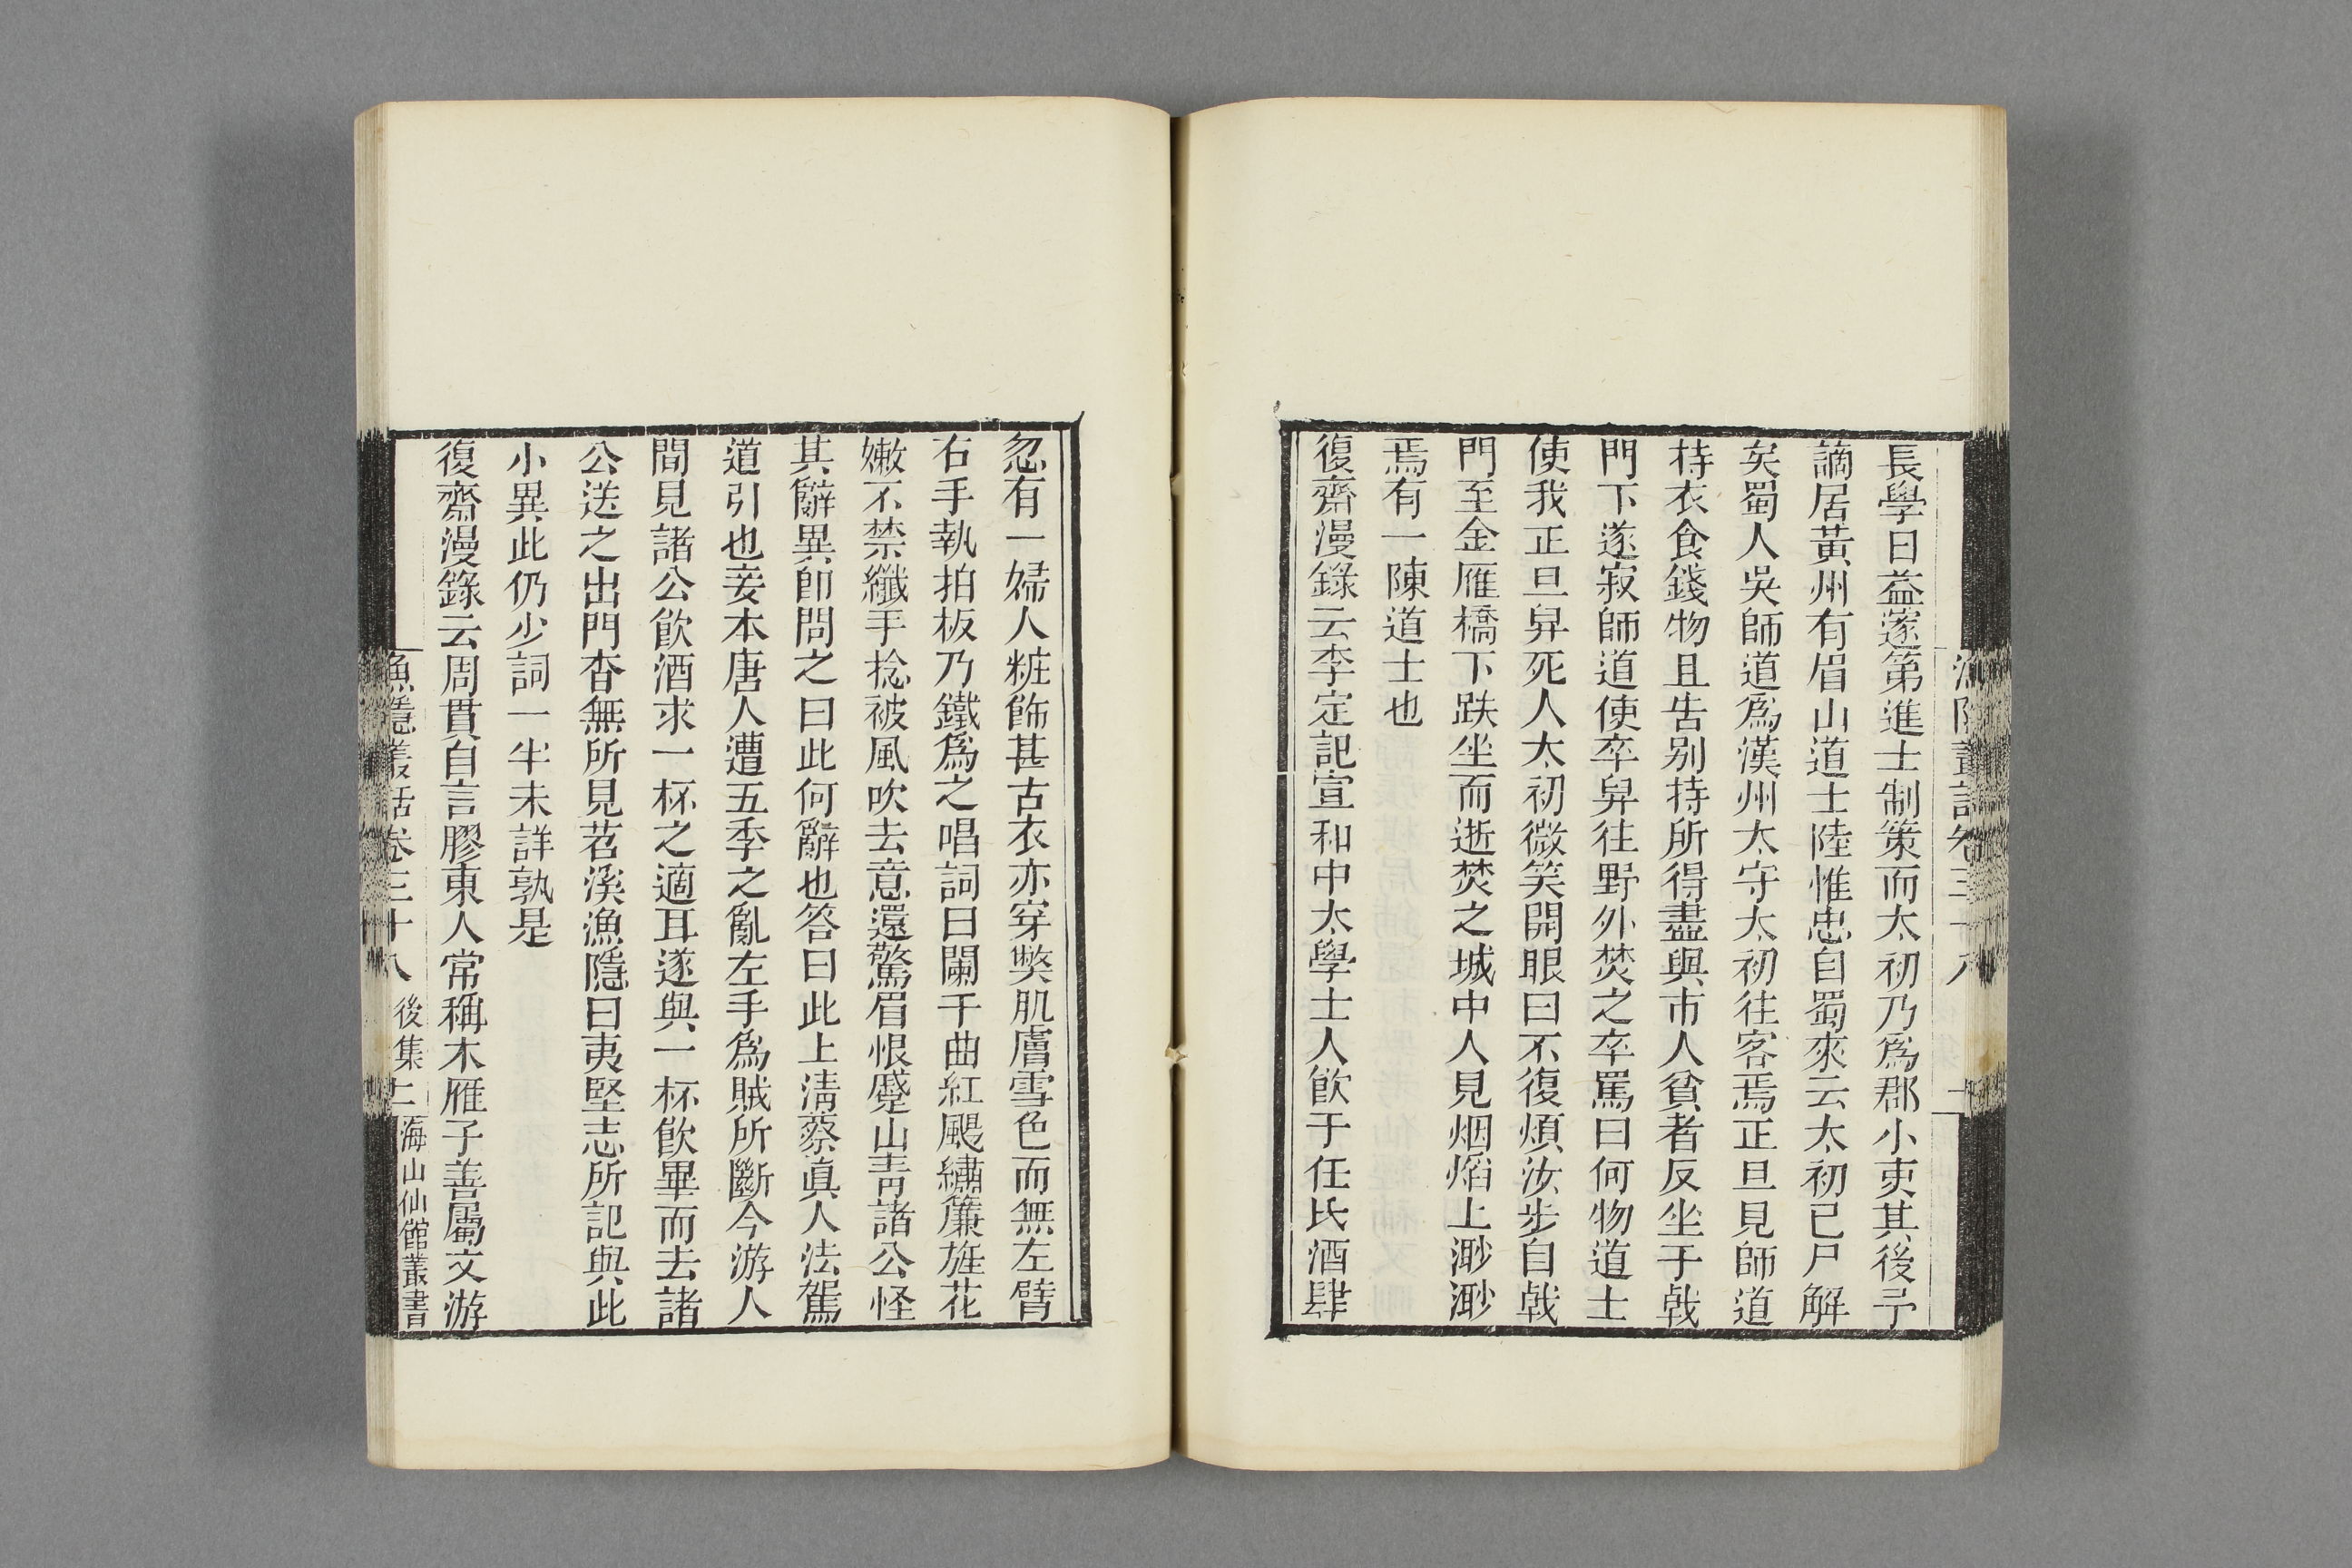 長學日益遂第進士制策而太初乃爲郡小吏其後予
謫居黃州有眉山道士陸惟忠自蜀來云太初已尸解
矣蜀人吳師道爲漢州太守太初往客焉正旦見師道
持衣食錢物且告别持所得盡與市人貧者反坐于戟
門下遂寂師道使卒舁往野外焚之卒罵曰何物道士
使我正旦舁死人太初微笑開眼曰不復煩汝步自戟
門至金雁橋下趺坐而逝焚之城中人見烟焰上渺渺
焉有一陳道士也
復齋漫錄云李定記宣和中太學士人飮于任氏酒肆
忽有一婦人粧飾甚古衣亦穿獘肌膚雪色而無左臂
右手執拍板乃鐵爲之唱詞曰闌干曲紅颺繡簾旌花
嫩不禁纖手捻被風吹去意還驚眉恨蹙山靑諸公怪
其辭異卽問之曰此何辭也答曰此上淸蔡眞人法駕
道引也妾本唐人遭五季之亂左手爲賊所斷今游人
間見諸公飮酒求一杯之適耳遂與一杯飮畢而去諸
公送之出門杳無所見苕溪漁隱曰夷堅志所記與此
小異此仍少詞一半未詳孰是
復齋漫錄云周貫自言膠東人常稱木雁子善屬文游
漁隱叢話卷三十八 後集 二 海山仙館叢書